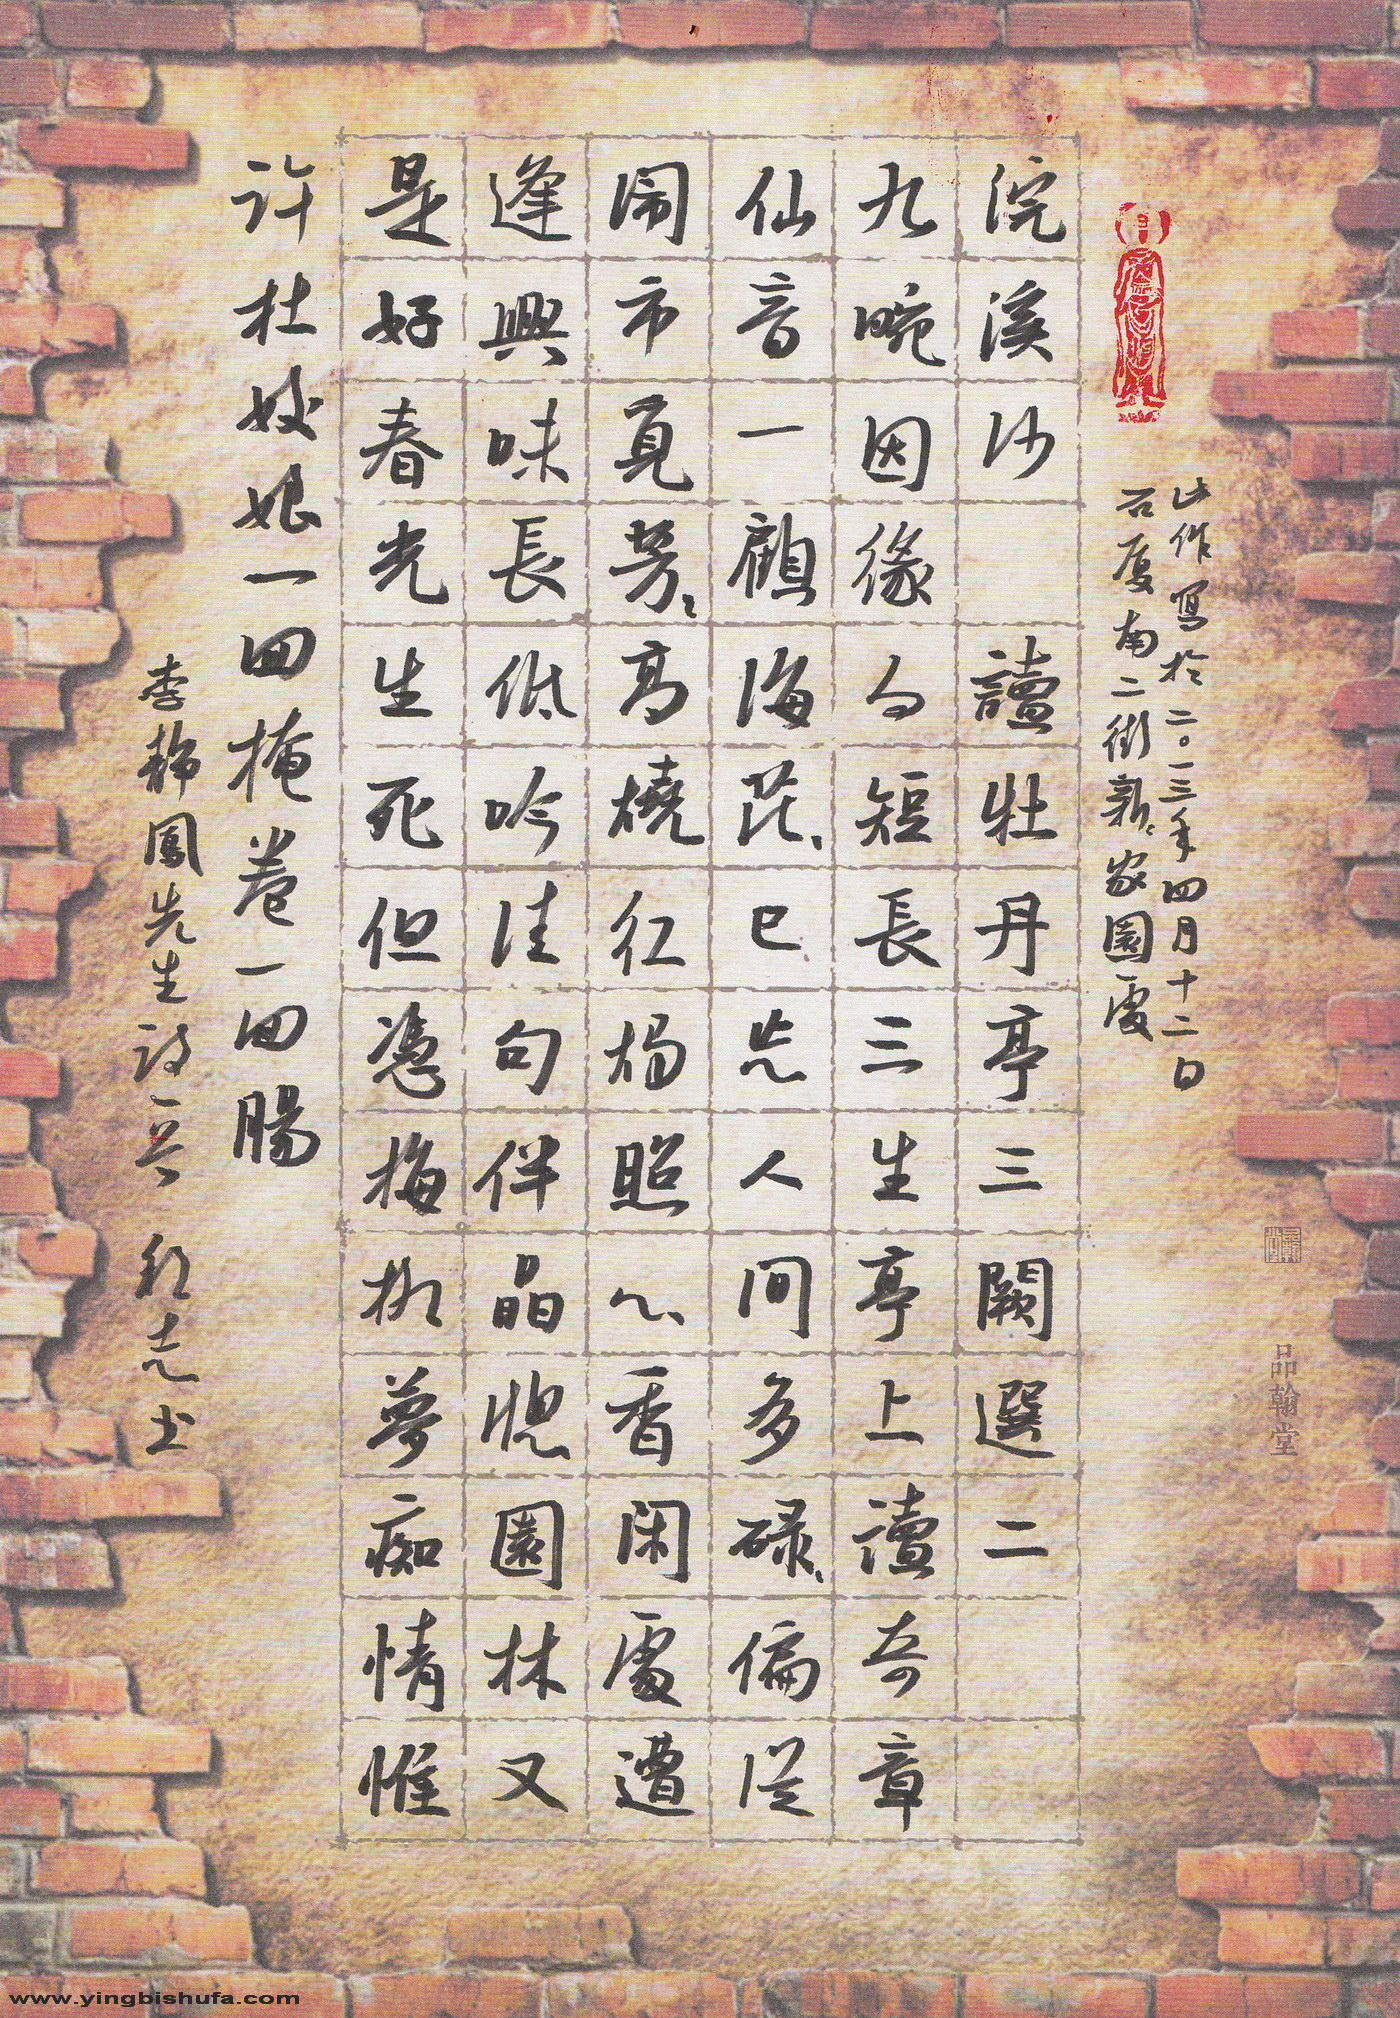 此作寫於二〇一三年四月十二日
石厦南二街新新家園處
浣溪沙 讀牡丹亭三闋選二
九畹因緣勻短長三生亭上讀奇章
仙音一顧海茫茫已先人間多碌碌偏從
鬧市覓芳芳高燒紅燭照心香閑處遭
逢興味長低吟佳句伴晶牕園林又
是好春光生死但憑梅柳夢痴情惟
許杜姣娘一回掩卷一回腸
李靜鳳先生詩二首 紅志書
品翰堂
www.yingbishufa.com